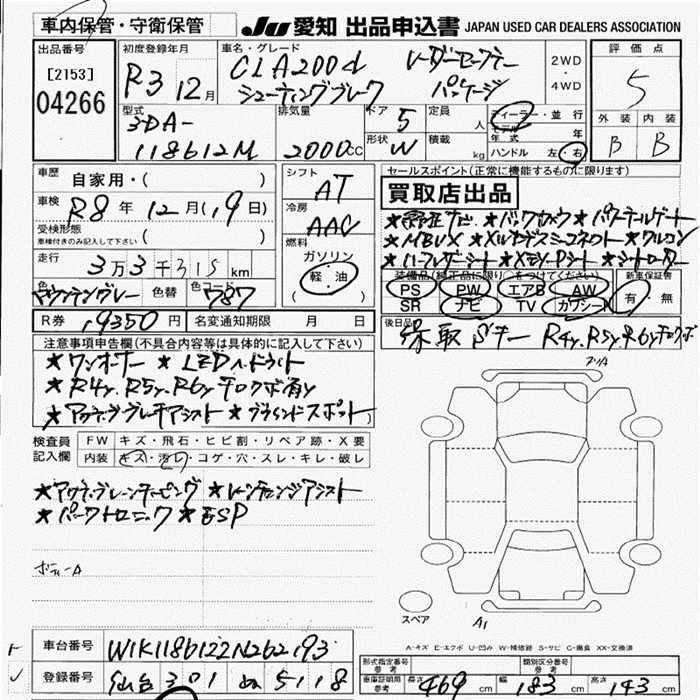 車内保管・守衛保管
JU 愛知 出品申込書 JAPAN USED CAR DEALERS ASSOCIATION
出品番号
[2153]
04266
初度登録年月
R3 12月
車名・グレード
CLA200d レーダーセーフティー
シューティングブレーク パッケージ
2WD
・
4WD
評価点
5
外装 内装
B B
型式
3DA-
118612M
排気量
2000CC
ドア 5
形状 W
定員 人
積載 kg
ディーラー・並行
モデル年式 年
ハンドル 左・右
車歴 自家用・( )
車検 R8年 12月(19日)
受検形態
車検付きのみ記入して下さい ( )
走行 3万3千315km
色 マウンテングレー 色替 色コード 787
シフト
AT
冷房
AAC
燃料
ガソリン
軽・油
セールスポイント(正常に機能するものに限ります)
買取店出品
★純正ナビ ★バックカメラ ★パワーテールゲート
★MBUX ★メルセデスミーコネクト ★ウルコン
★ハーフレザーシート ★メモリーPシート ★シートヒーター
装備品(純正品に限り○をつけてください)
PS PW エアB AW
SR ナビ TV カワシート
新車保証書
有・無
R券 19350円 名変通知期限 月 日
後日品
保 取 Sキー R4y,R5y,R6yテロクボ
注意事項申告欄(不具合内容等は具体的に記入して下さい)
★ワンオーナー ★LEDヘッドライト
★R4y.R5y.R6yテロクボ有y
★アクティブブレーキアシスト ★ブラインドスポット
検査員
記入欄
FW キズ・飛石・ヒビ割・リペア跡・X要
内装 キズ・汚レ・コゲ・穴・スレ・キレ・破レ
★アクティブレーンキーピング ★レーンチェンジアシスト
★パークトロニック ★ESP
ボディーA
スペア
A1
A-キズ E-エクボ U-凹み W-補修跡 S-サビ C-腐食 XX-交換済
車台番号 W1K1186122N262193
登録番号 仙台 301 ぬ 5118
形式指定番号
参考
類別区分番号
参考
車庫証明期間
参考
長さ 469cm 幅 183cm 高さ 143cm